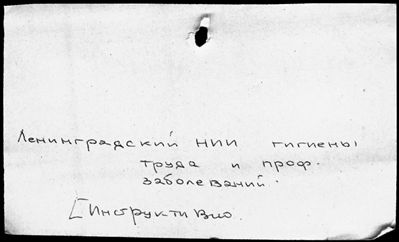 Ленинградский НИИ гигиены
труда и проф.
заболеваний.
[Инструктивно.